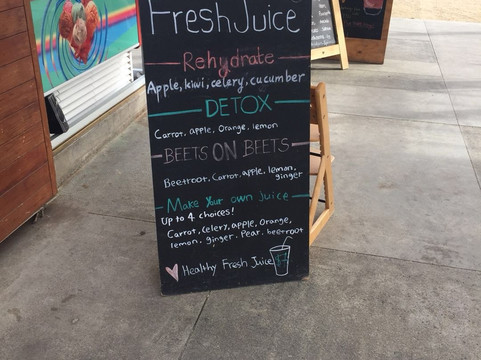 Fresh Juice
Rehydrate
Apple, kiwi, celery, cucumber
DETOX
Carrot, apple, Orange, lemon
BEETS ON BEETS
Beetroot, Carrot, apple, lemon,
ginger
Make Your own Juice
Up to 4 choices!
Carrot, Celery, apple, Orange,
lemon, ginger, Pear, beetroot
Healthy Fresh Juice